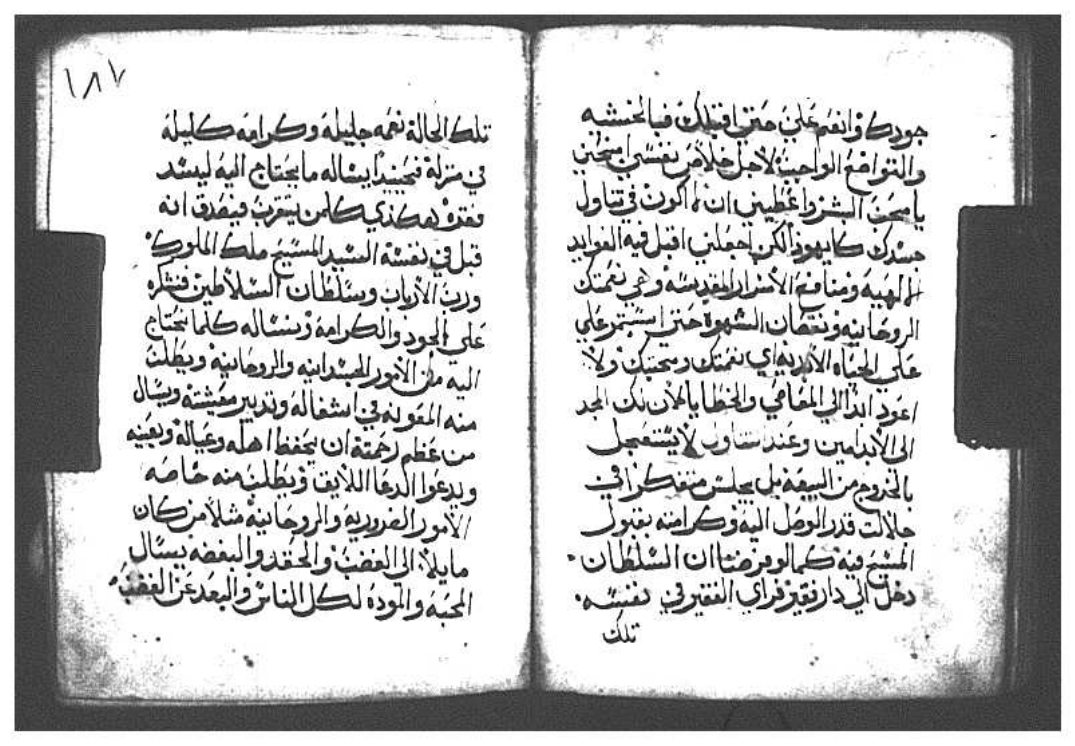 جودك وانعم علي حتي اقبلك فيا بخشيه
والتواضع الواجب لاجل خلاص نفسي امنحني
يا محب البشر واعطيني ان لا اكون في تناول
جسدك كايهوذا لكن اجعلني اقبل فيه الفوايد
الالهيه ومنافع الاسرار المقدسه وهي نعمتك
الروحانيه ونقصان الشهوة حتي استمر علي
علي الحياه الابديه اي نعمتك ومحبتك ولا
اعود ابدا الي المعاصي والخطايا لان لك المجد
الي الابد امين وعند تناول لا يستعجل
بالخروج من البيعه بل يجلس متفكرا في
جلالت قدر الوصل اليه وكرامته بقبول
المسيح فيه كما لو فرضنا ان السلطان
دخل الي دار فقير فراي الفقير في نفسه
تلك
١٨٧
تلك الحالة نعمه جليله وكرامه كليله
في منزلة فحينيدا يساله ما يحتاج اليه ليسد
فقره هكذي كلمن يتقرب فيصدق انه
قبل في نفسه السيد المسيح ملك الملوك
ورب الارباب وسلطان السلاطين فنشكره
علي الجود والكرامه ونساله كلما نحتاج
اليه من الامور الجسدانيه والروحانيه ويطلب
منه المعونه في اشغاله وتدبير معيشته ويسال
من عظم رحمته ان يحفظ اهله وعياله وبقيته
ويدعوا الدعا اللايق ويطلب منه خاصه
الامور الضروريه والروحانيه مثلا من كان
مايلا الي الغضب والحقد والبغضه يسال
المحبه والموده لكل الناس والبعد عن الغضب